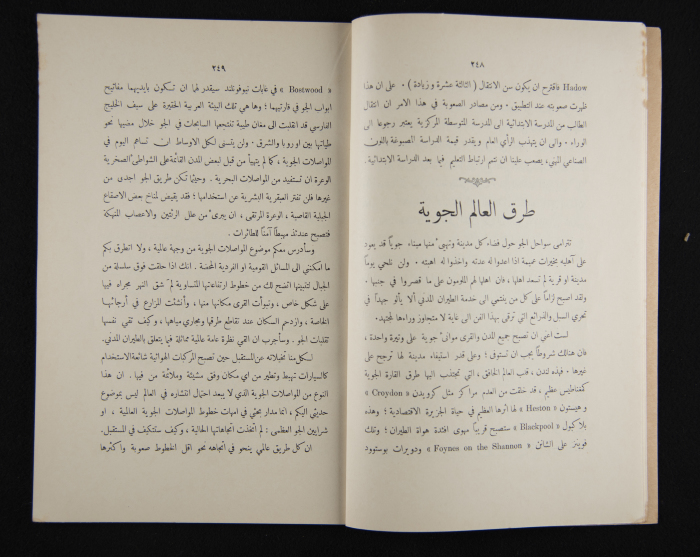 ٢٤٨
Hadow فاقترح ان يكون سن الانتقال ( الثالثة عشرة وزيادة ) . على ان هذا
ظهرت صعوبته عند التطبيق . ومن مصادر الصعوبة في هذا الامر ان انتقال
الطالب من المدرسة الابتدائية الى المدرسة المتوسطة المركزية يعتبر رجوعا الى
الوراء . والى ان يتهذب الرأي العام ويقدر قيمة الدراسة المصبوغة باللون
الصناعي المهني، يصعب علينا ان نتم ارتباط التعليم فيما بعد الدراسة الابتدائية .
طرق العالم الجوية
تترامى سواحل الجو حول فضاء كل مدينة وتهيئ منها ميناء جوياً قد يعود
على آهليه بخيرات عميمة اذا اعدوا له عدته واخذوا له اهبته . ولن تلحى يوماً
مدينة او قرية لم تسعد اهلها ، فان اهلها لهم الملومون على ما قصروا في جنبها .
ولقد اصبح لزاماً على كل من ينتمي الى خدمة الطيران المدني ألا يألو جهداً في
تحري السبل والذرائع التي ترقى بهذا الفن الى غاية لا متجاوز وراءها لمجتهد.
لست اعني ان تصبح جميع المدن والقرى موانئ جوية على وتيرة واحدة ،
فان هنالك شروطاً يجب ان تستوفى ؛ وعلى قدر استيفاء مدينة لها ترجح على
غيرها . فهذه لندن ، قلب العالم الخافق ، التي تجتذب اليها طرق القارة الجوية
كمغناطيس عظيم، قد خلقت من العدم مراكز مثل كرويدن « Croydon »
وهيستون « Heston » لها اثرها العظيم في حياة الجزيرة الاقتصادية ؛ وهذه
بلاكبول « Blackpool » ستصبح قريباً مهوى افئدة هواة الطيران ؛ وتلك
فوينز على الشانن « Foynes on the Shannon » ودوبرات بوستوود
٢٤٩
« Bostwood » في غابات نيوفوندلند سيقدر لها ان تكون بايديهما مفاتيح
ابواب الجو في قارتيهما ؛ وها هي تلك البيئة العربية الحقيرة على سيف الخليج
الفارسي قد انقلبت الى مغان طيبة تنتجعها السابحات في الجو خلال مضيها نحو
طياتها بين اوروبا والشرق . ولن يتسنى لكل الاوساط ان تساهم اليوم في
المواصلات الجوية ، كما لم يتهيأ من قبل لبعض المدن القائمة على الشواطئ الصخرية
الوعرة ان تستفيد من المواصلات البحرية . وحيثما تكن طريق الجو اجدى من
غيرها فلن تفتر العبقرية البشرية عن استخدامها ؛ فقد يقيض لمناخ بعض الاصقاع
الجبلية القاصية ، الوعرة المرتقى ، ان يبرئ من علل الرئتين والاعصاب المنهكة
فتصبح عندئذ مهبطاً آمناً للطائرات .
وسأدرس معكم موضوع المواصلات الجوية من وجهة عالمية ، ولا اتطرق بكم
ما امكنني الى المسائل القومية او الفردية المحضة . انك اذا حلقت فوق سلسلة من
الجبال لتنبينها اتضح لك من خطوط ارتفاعاتها المتساوية لمَ شق النهر مجراه فيها
على شكل خاص ، وتبوأت القرى مكاناتها منها ، وأنشئت المزارع في أرجائها
الخاصة ، وازدحم السكان عند تقاطع طرقها ومجاري مياهها ، وكيف تقي نفسها
تقلبات الجو . وسأجرب ان القي نظرة عامة عالمية مماثلة فيما يتعلق بالطيران المدني.
لكل منا تخيلاته عن المستقبل حين تصبح المركبات الهوائية شائعة الاستخدام
كالسيارات تهبط وتطير من اي مكان وفق مشيئة وملائمة من فيها . ان هذا
النوع من المواصلات الجوية الذي لا يبعد احتمال انتشاره في العالم ليس بموضوع
حديثي اليكم ، انما مدار بحثي في امهات خطوط المواصلات الجوية العالمية ، او
شرايين الجو العظمى : لم اتخذت اتجاهاتها الحالية ، وكيف ستتكيف في المستقبل.
ان كل طريق عالمي ينحو في اتجاهه نحو اقل الخطوط صعوبة واكثرها